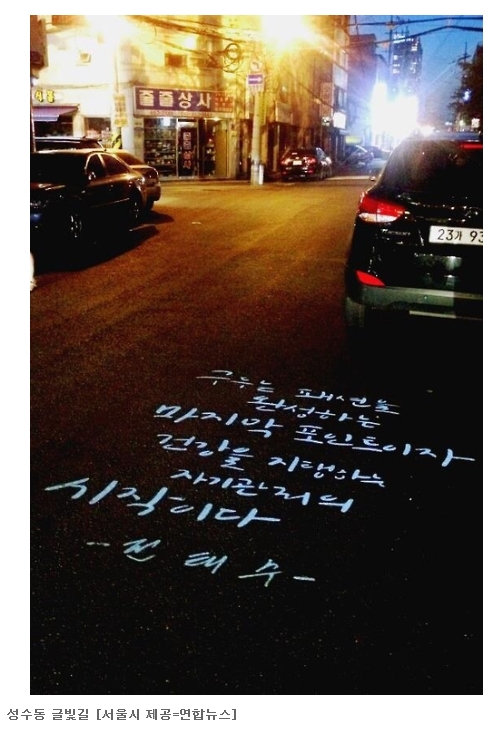 줄줄상사
23가 93
구두는 패션을
완성하는
마지막 포인트이자
건강을 지탱하는
자기관리의
시작이다
-전태수-
성수동 글빛길 [서울시 제공=연합뉴스]